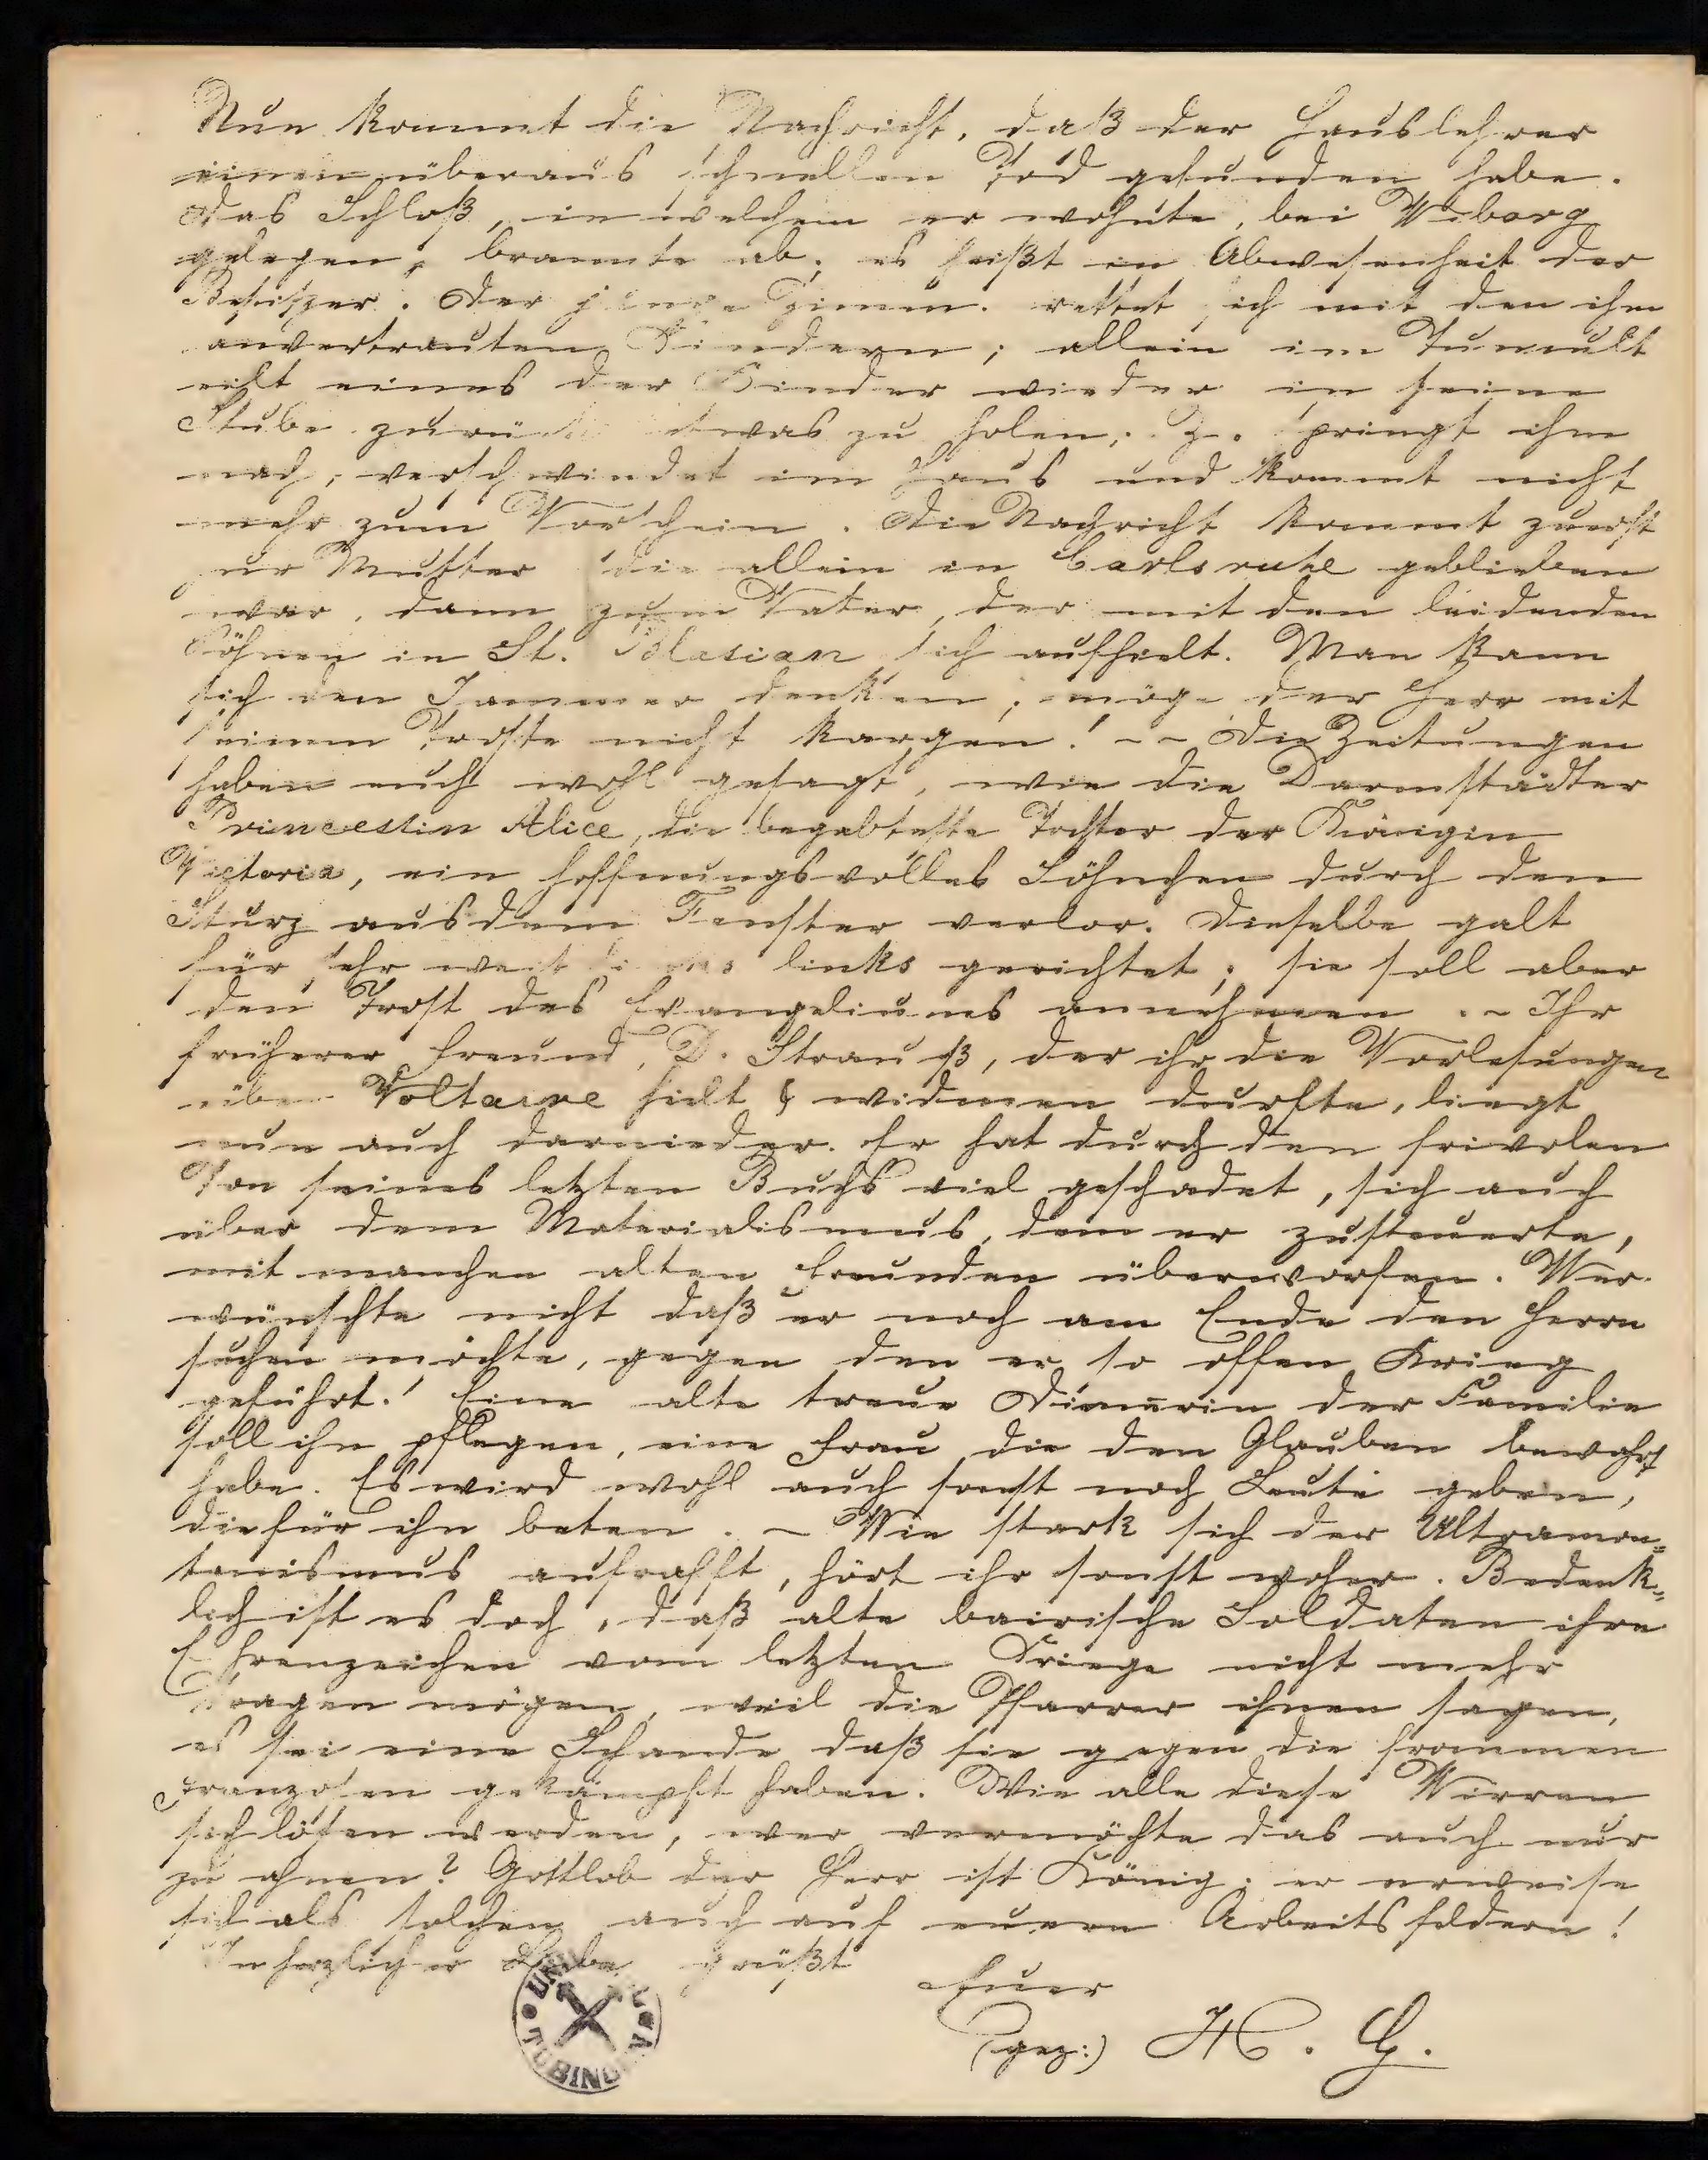 Nun kommt die Nachricht, daß der Hauslehrer
einen überaus schnellen Tod gefunden habe.
Das Schloß, in welchem er wohnte, bei Wiborg
gelegen, brannte ab; es heißt in Abwesenheit der
Besitzer. Der junge Zimm. rettet sich mit den ihm
anvertrauten Kindern; allein im Tumult
eilt eines der Kinder wieder in seine
Stube zurück etwas zu holen; Z. springt ihm
nach, verschwindet im Haus und kommt nicht
mehr zum Vorschein. Die Nachricht kommt zuerst
zur Mutter die allein in Carlsruhe geblieben
war, dann zum Vater, der mit den leidenden
Söhnen in St. Blasian sich aufhielt. Man kann
sich den Jammer denken; möge der Herr mit
seinem Troste nicht kargen! -- Die Zeitungen
haben euch wohl gesagt, wie die Darmstädter
Princessin Alice, die begabteste Tochter der Königin
Victoria, ein hoffnungsvolles Söhnchen durch den
Sturz aus dem Fenster verlor. Dieselbe galt
für sehr weit links gerichtet; sie soll aber
den Trost des Evangeliums annehmen. - Ihr
früherer Freund, D. Strauß, der ihr die Vorlesungen
über Voltaire hielt & widmen durfte, liegt
nun auch darnieder. Er hat durch den frivolen
Ton seines letzten Buchs viel geschadet, sich auch
über dem Materialismus, dem er zusteuerte,
mit manchen alten Freunden überworfen. Wer
wünschte nicht daß er noch am Ende den Herrn
suchen möchte, gegen den er so offen Krieg
geführt! Eine alte treue Dienerin der Familie
soll ihn pflegen, eine Frau die den Glauben bewahrt
habe. Es wird wohl auch sonst noch Leute geben,
die für ihn beten. - Wie stark sich der Ultramon=
tanismus aufrafft, hört ihr sonst woher. Bedenk=
lich ist es doch, daß alte bairische Soldaten ihre
Ehrenzeichen vom letzten Kriege nicht mehr
tragen mögen, weil die Pfarrer ihnen sagen,
es sei eine Schande daß sie gegen die frommen
Franzosen gekämpft haben. Wie alle diese Wirren
sich lösen werden, wer vermöchte das auch nur
zu ahnen? Gottlob der Herr ist König; er erweise
sich als solchen auch auf euern Arbeitsfeldern!
In herzlicher Liebe grüßt
Euer
(gez:) H. G.
TÜBINGEN